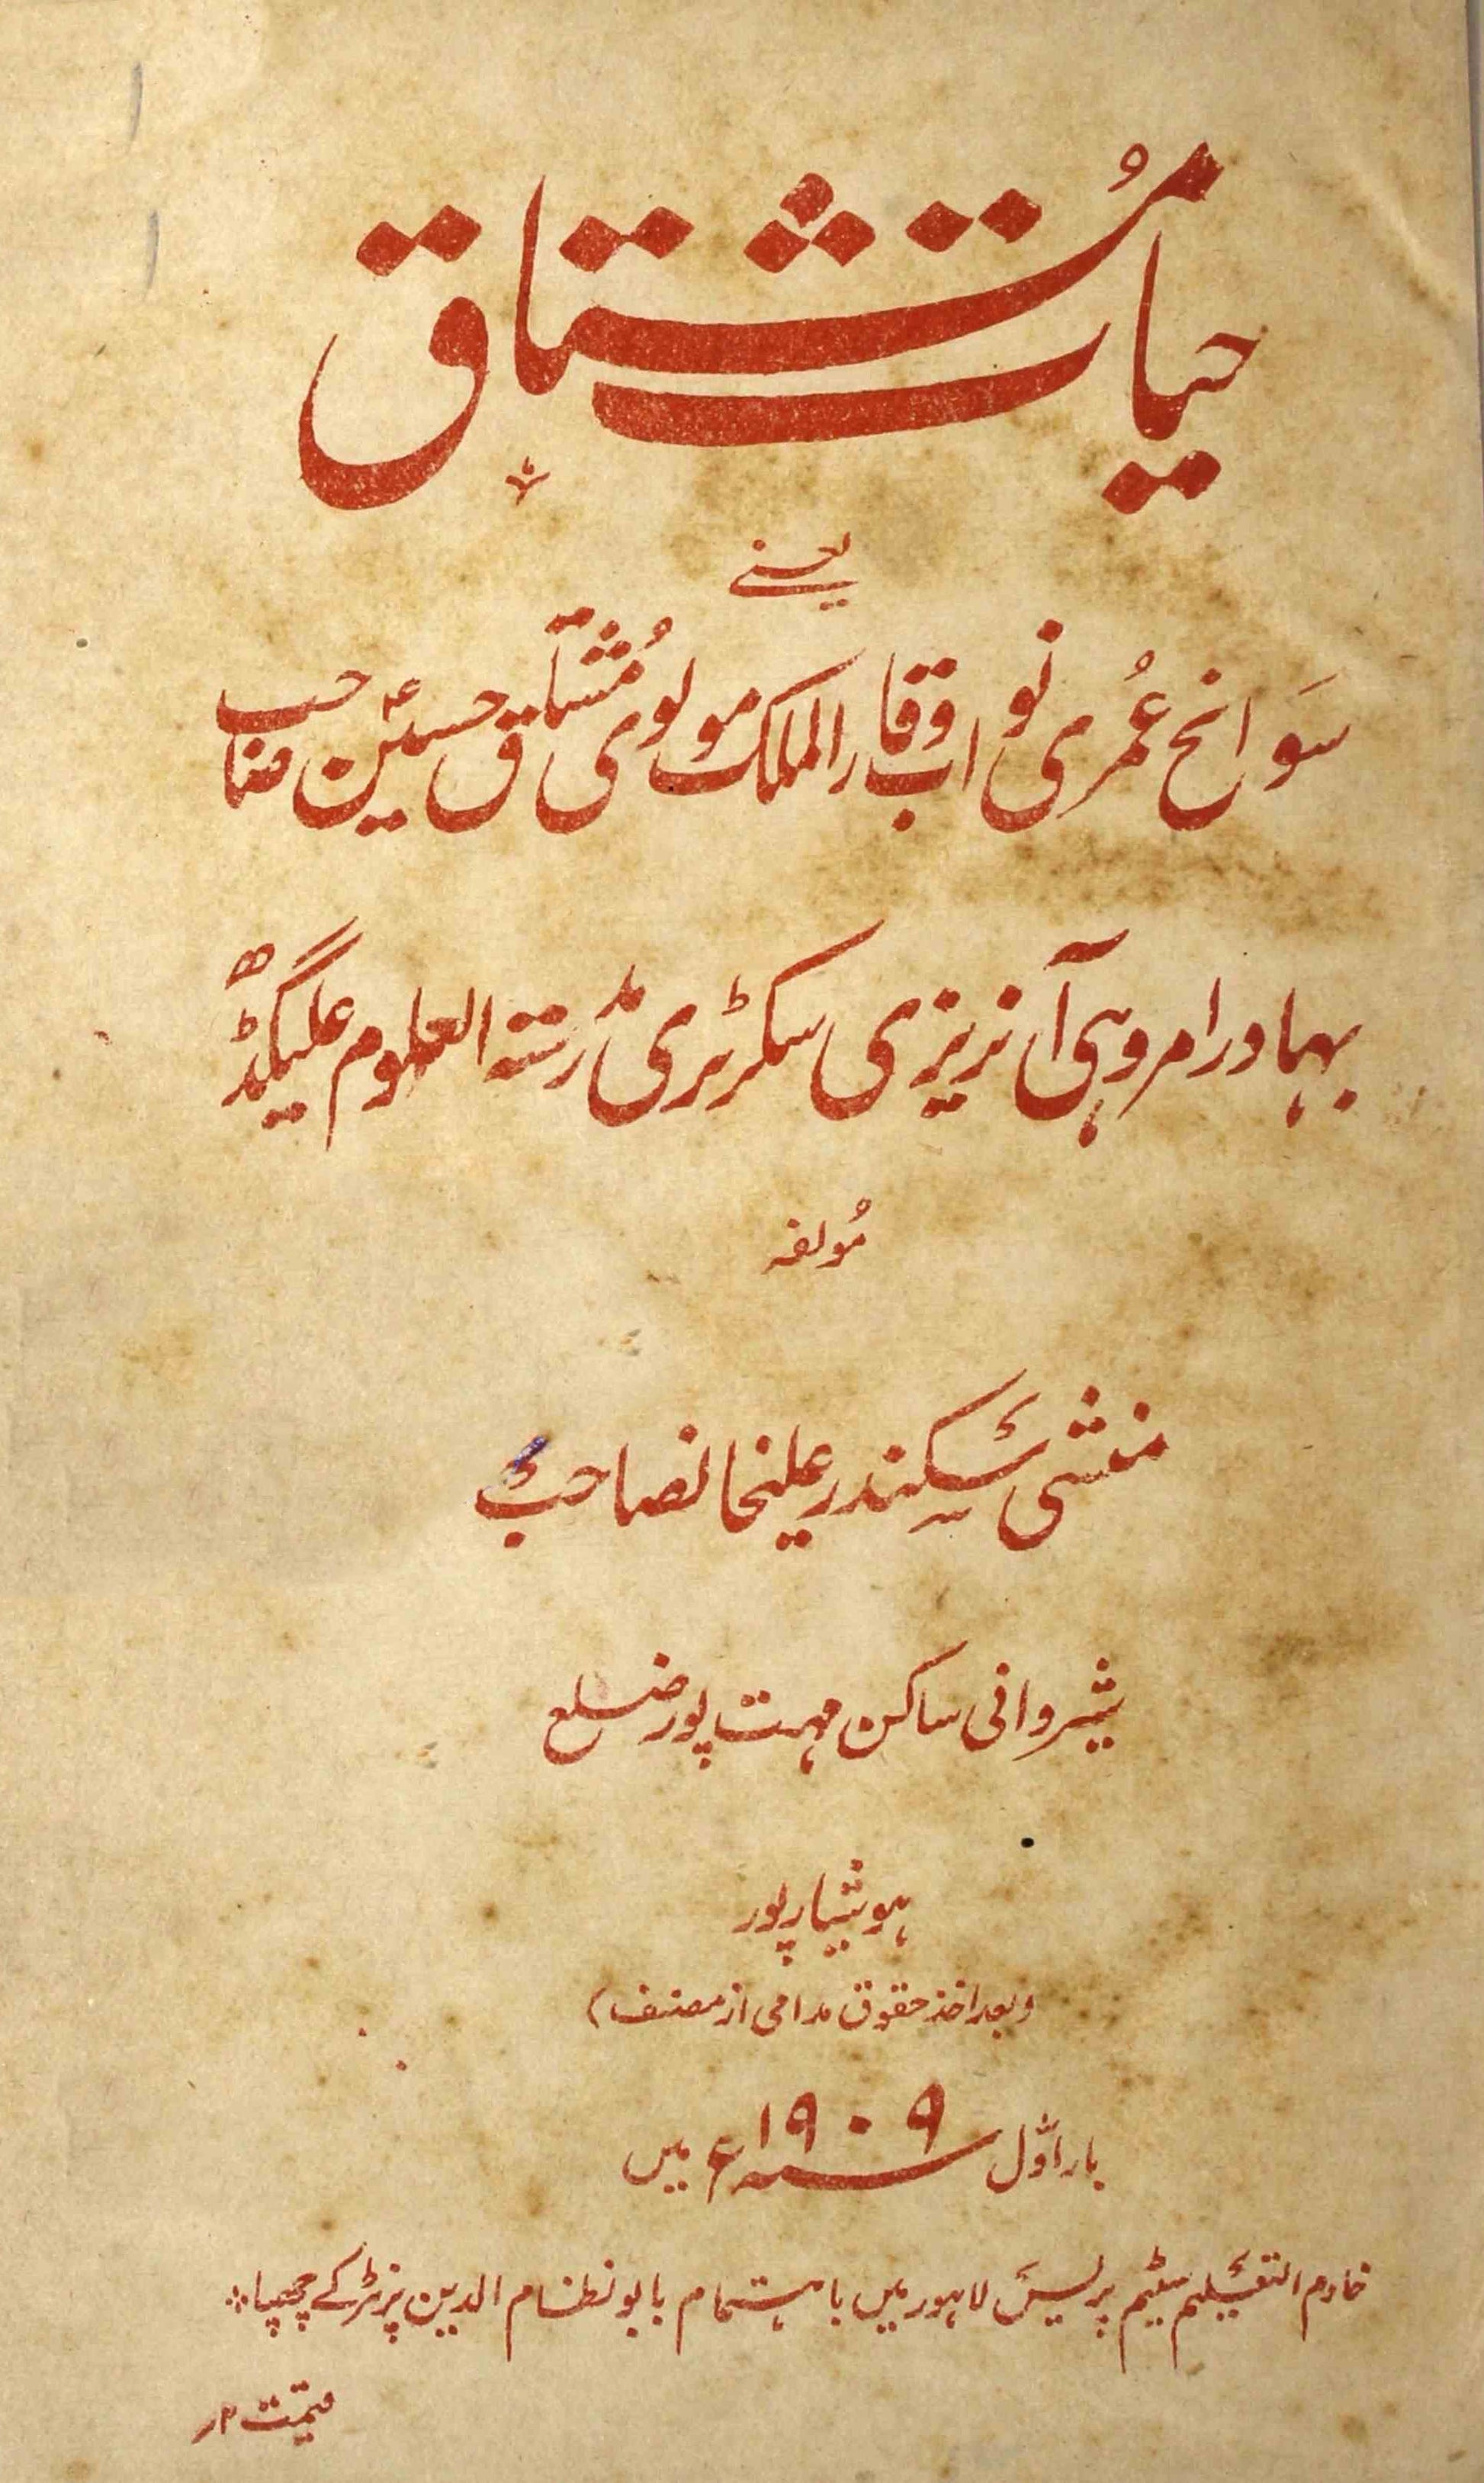 حیات مُشتاق
یعنے
سَوانح عُمری نواب وقار الملک مولوی مُشتاق حسین صاحب
بہادر امروہی آنریری سکرٹری مدرستہ العلوم علیگڈھ
مُولفہ
منشی سکندر علیخانصاحب
شیروانی ساکن مہت پور ضلع
ہوشیارپور
(بعد اخذ حقوق مدامی از مصنف)
بار اوّل سنہ ۱۹۰۹ء میں
خادم التعلیم سٹیم پریس لاہور میں باہتمام بابو نظام الدین پرنٹر کے چھپا
قیمت ۲ر